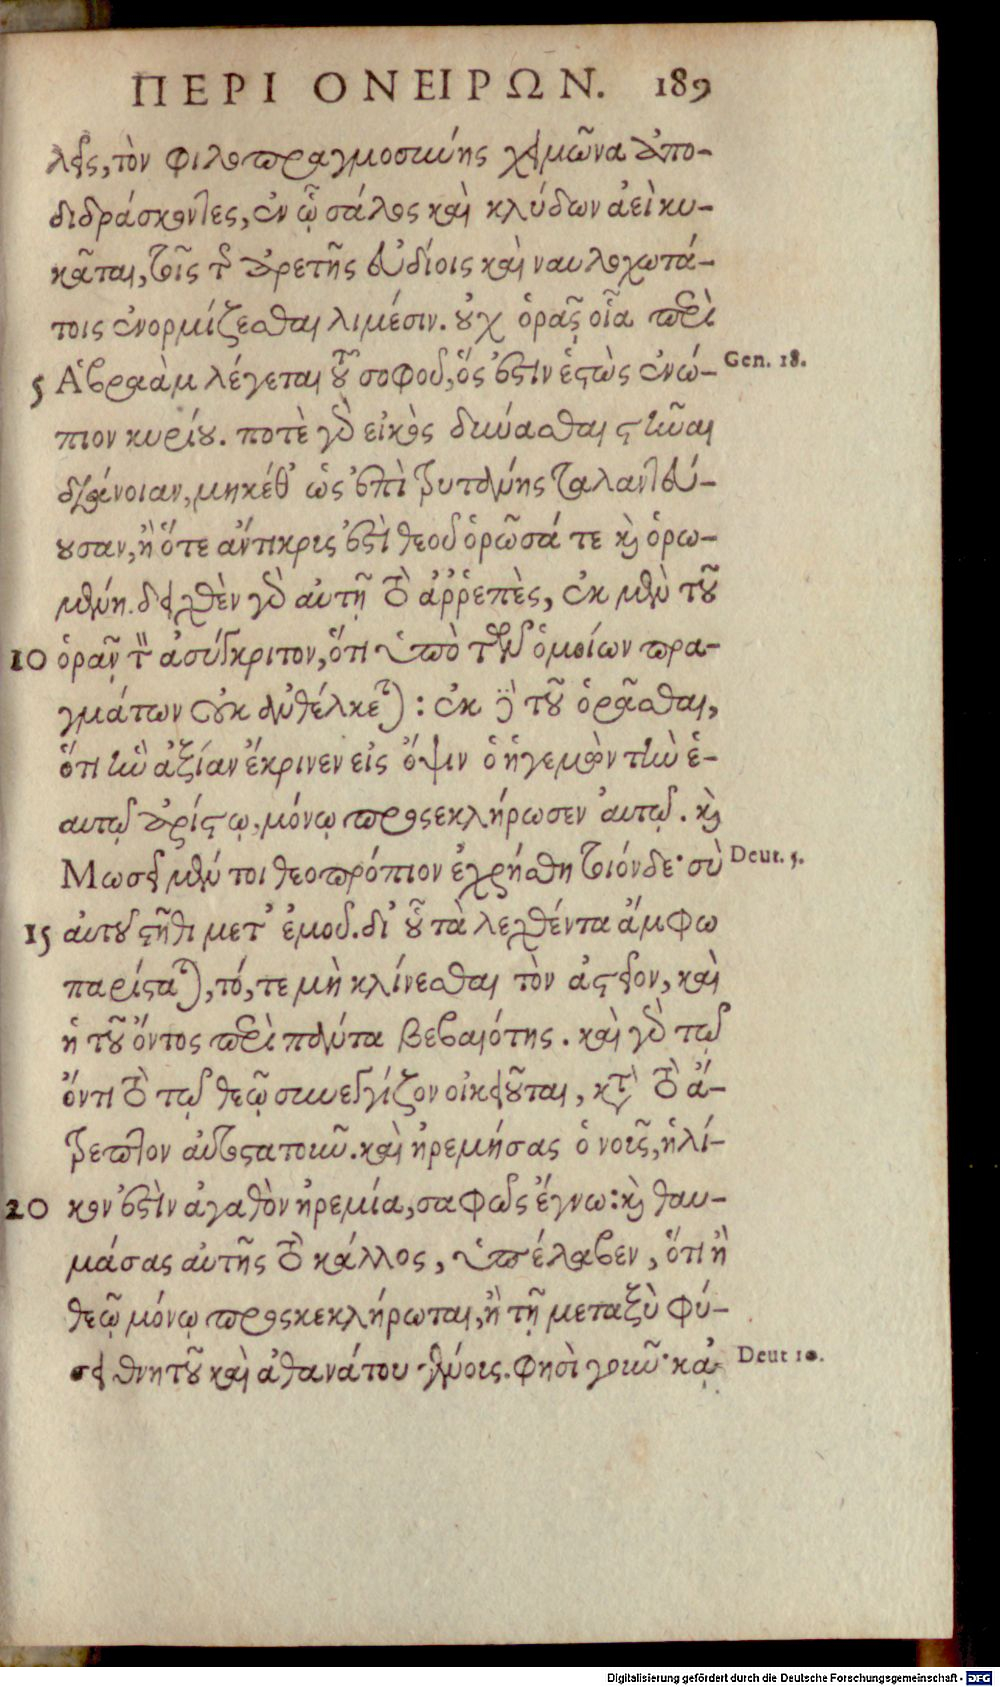 ΠΕΡΙ ΟΝΕΙΡΩΝ. 189
λεῖς, τὸν φιλοπραγμοσύνης χειμῶνα ἀπο-
διδράσκοντες, ἐν ᾧ σάλος καὶ κλύδων ἀεὶ κυ-
κᾶται, τοῖς τῆς ἀρετῆς εὐδίοις καὶ ναυλοχωτά-
τοις ἐνορμίζεσθαι λιμέσιν. οὐχ ὁρᾷς οἷα περὶ
5 Ἀβραὰμ λέγεται τοῦ σοφοῦ, ὅς ἐστιν ἑστὼς ἐνώ- Gen. 18.
πιον κυρίου. ποτὲ γὰρ εἰκὸς δύνασθαι στῆναι
διάνοιαν, μηκέθ' ὡς ἐπὶ ῥυτάνης ταλαντεύ-
ουσαν, ἢ ὅτε ἄντικρίς ἐστι θεοῦ ὁρῶσά τε καὶ ὁρω-
μένη. διχθὲν γὰρ αὐτῇ τὸ ἀῤῥεπὲς, ἐκ μὲν τοῦ
10 ὁρᾷν τὸν ἀσύγκριτον, ὅτι ὑπὸ τῶν ὁμοίων πρα-
γμάτων οὐκ ἀνθέλκεται: ἐκ δὲ τοῦ ὁρᾶσθαι,
ὅτι ἣν ἀξίαν ἔκρινεν εἰς ὄψιν ὁ ἡγεμὼν τὴν ἑ-
αυτῷ ἀρίστῳ, μόνῳ προσεκλήρωσεν αὐτῷ. καὶ
Μωσεῖ μέντοι θεοπρόπιον ἐχρήσθη τοιόνδε· σὺ Deut. 5.
15 αὐτοῦ στῆθι μετ' ἐμοῦ. δι' οὗ τὰ λεχθέντα ἄμφω
παρίσταται, τό, τε μὴ κλίνεσθαι τὸν ἀστεῖον, καὶ
ἡ τοῦ ὄντος περὶ πάντα βεβαιότης. καὶ γὰρ τῷ
ὄντι τὸ τῷ θεῷ συνεγγίζον οἰκειοῦται, κατὰ τὸ ἄ-
τρεπτον αὐτοστατοῦν. καὶ ἠρεμήσας ὁ νοῦς, ἡλί-
20 κον ἐστὶν ἀγαθὸν ἠρεμία, σαφῶς ἔγνω: καὶ θαυ-
μάσας αὐτῆς τὸ κάλλος, ὑπέλαβεν, ὅτι ἢ
θεῷ μόνῳ προσκεκλήρωται, ἢ τῇ μεταξὺ φύ-
σει θνητοῦ καὶ ἀθανάτου γένοις. φησὶ γοῦν· κἀ- Deut 10.
Digitalisierung gefördert durch die Deutsche Forschungsgemeinschaft - DFG